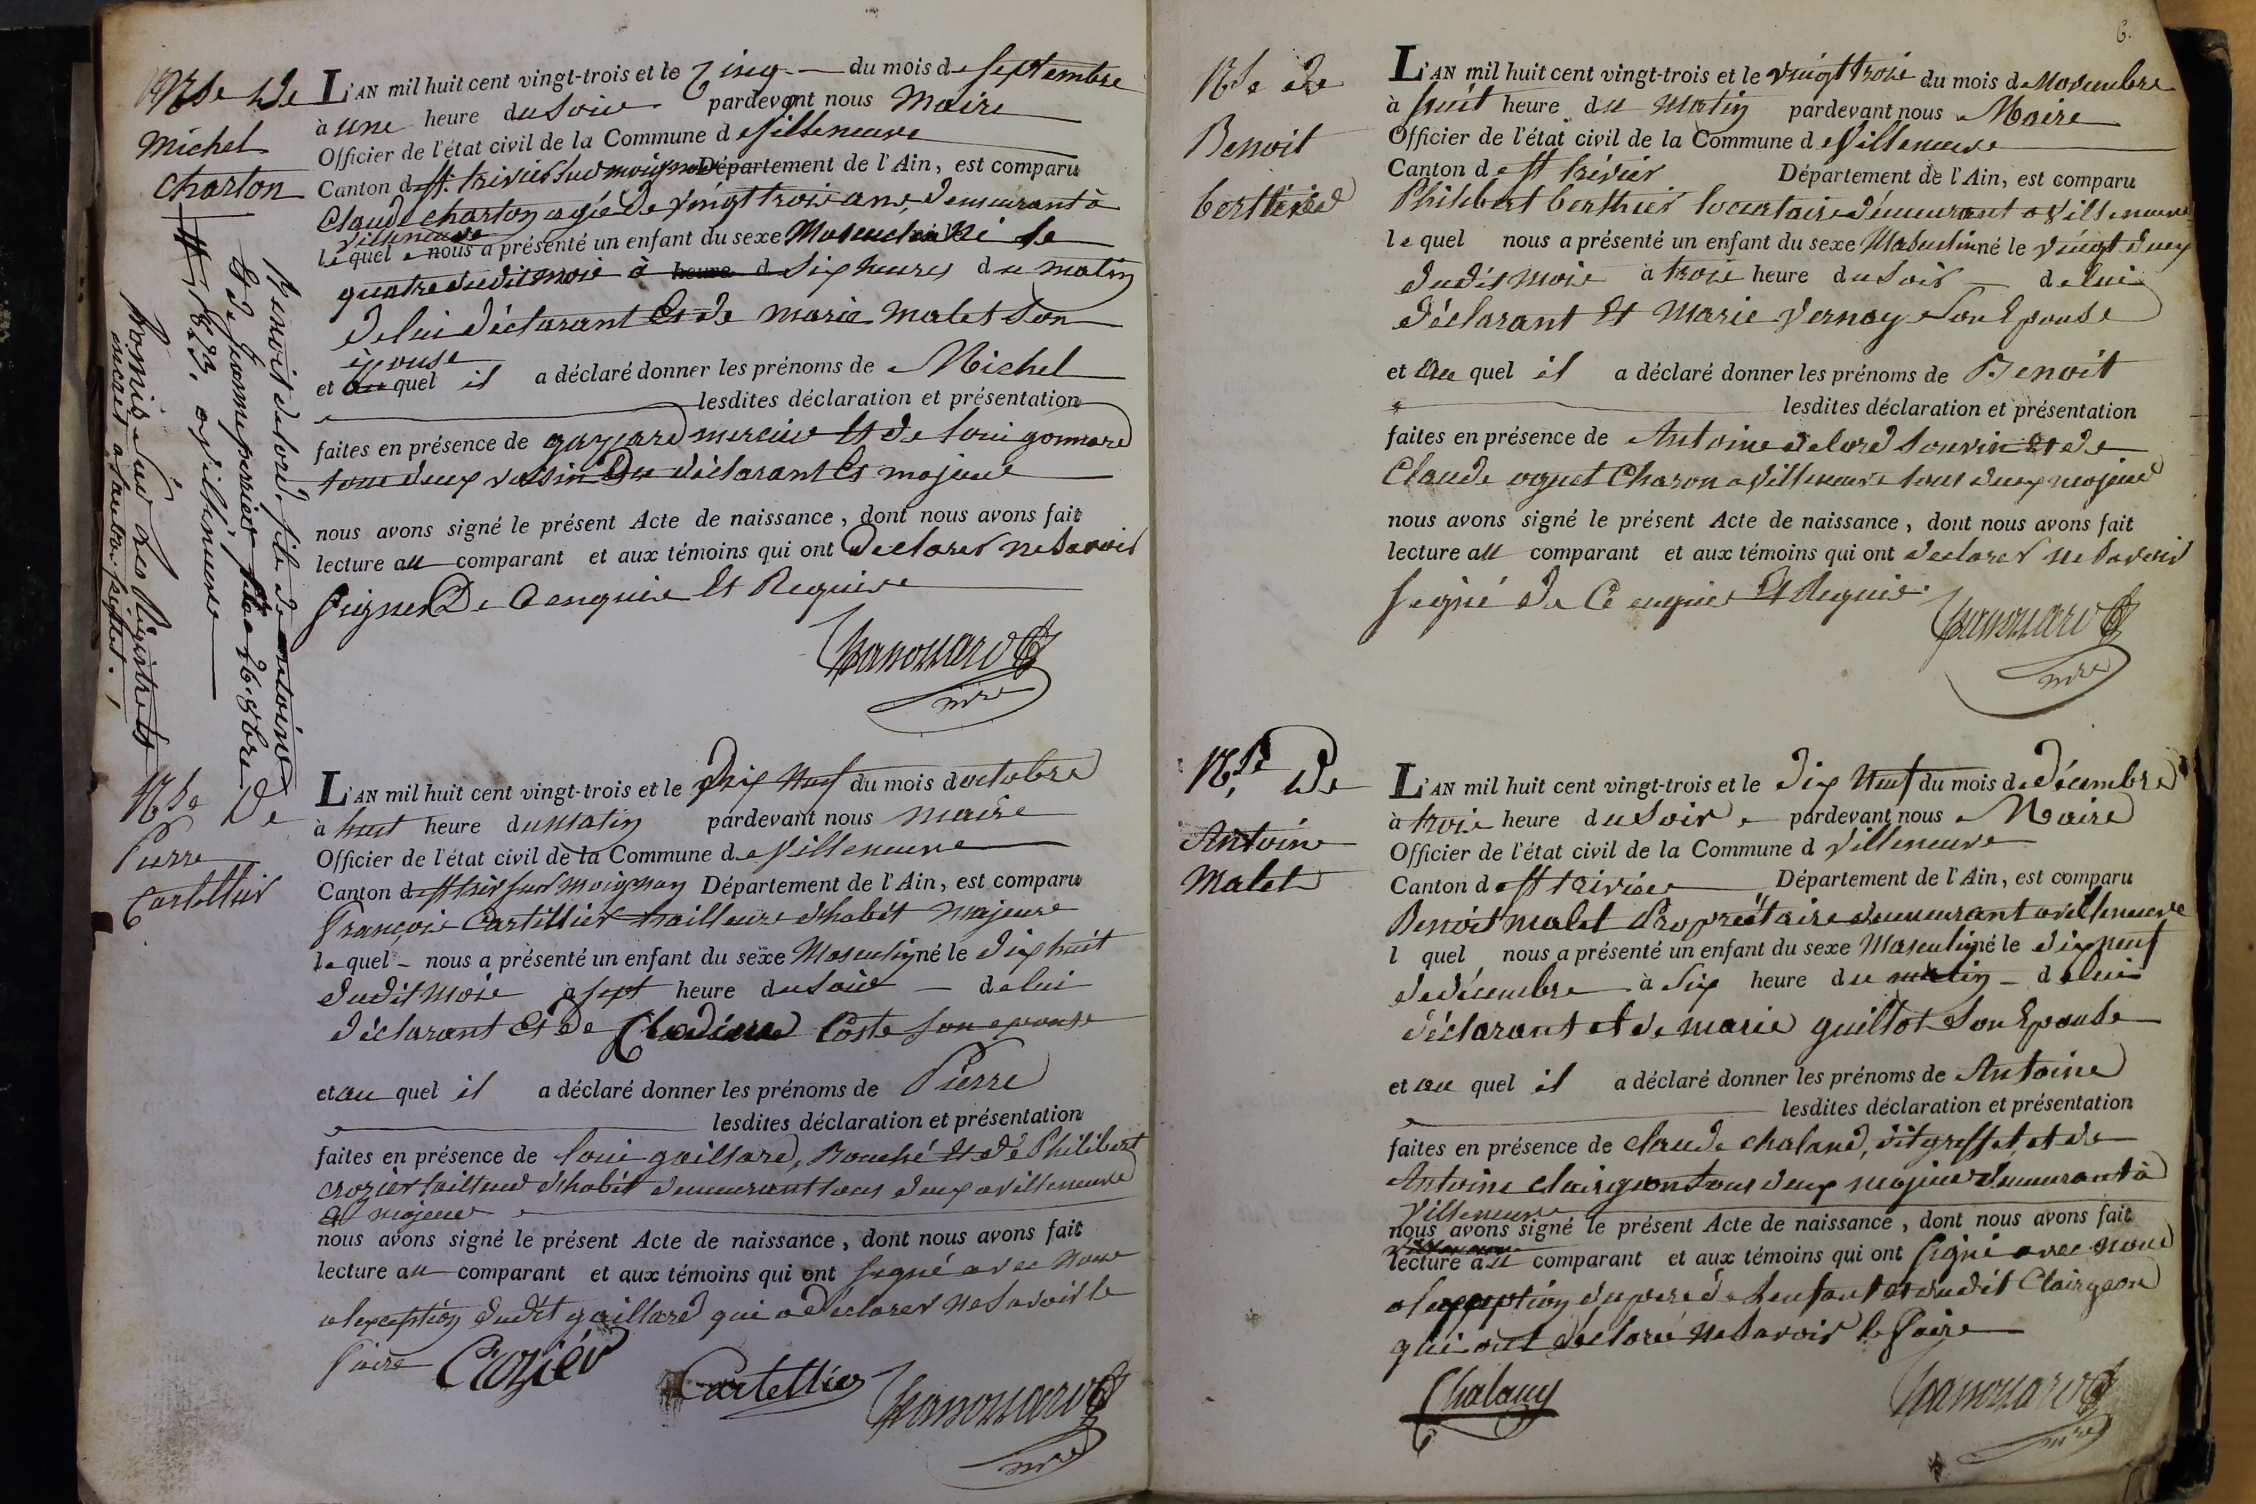 Nce De
Michel
Charton
Benoit delord, fils de antoine
Et de jeanne perrier, né le 26. 8bre
1823, a villeneuve
Homis sur les Registre et
inscrit
L'AN mil huit cent vingt-trois et le Cinq du mois de Septembre
à une heure du Soir pardevant nous Maire
Officier de l'état civil de la Commune de Villeneuve
Canton de St. trivier Sur moignan Département de l'Ain, est comparu
Claude charton agée de vingt trois ans, demeurant à
Villeneuve
lequel nous a présenté un enfant du sexe Masculin Né le
quatre dudit mois à heure d Six heures du matin
de lui déclarant Et de marie malet Son
épouse
et au quel il a déclaré donner les prénoms de Michel
lesdites déclaration et présentation
faites en présence de gaspard mercier Et de loui gonnard
tous deux voisin Du déclarant Et majeur
nous avons signé le présent Acte de naissance, dont nous avons fait
lecture au comparant et aux témoins qui ont Declarer ne Savoir
Signer De Ce enquis Et Requis
mre
Nce De
Pierre
Cartellier
L'AN mil huit cent vingt-trois et le Dix Neuf du mois d'octobre
à huit heure du Matin pardevant nous maire
Officier de l'état civil de la Commune de Villeneuve
Canton de St triv sur moignan Département de l'Ain, est comparu
François Cartellier tailleure d'habit Majeure
lequel nous a présenté un enfant du sexe Masculin né le dix huit
dudit mois a Sept heure du Soir de lui
déclarant Et De Claudine Coste Son epouse
et au quel il a déclaré donner les prénoms de Pierre
lesdites déclaration et présentation
faites en présence de loui gaillard, Bouché Et de Philibert
crozier tailleur d'habit demeurant tous deux a villeneuve
Et majeur
nous avons signé le présent Acte de naissance, dont nous avons fait
lecture au comparant et aux témoins qui ont Signé avec nous
a lexception dudit gaillard qui a déclarer ne Savoir le
faire Crozier Cartellier
mre
6.
Nce De
Benoit
berthier
L'AN mil huit cent vingt-trois et le vingt trois du mois de Novembre
à huit heure du Matin pardevant nous Maire
Officier de l'état civil de la Commune de Villeneuve
Canton de St trivier Département de l'Ain, est comparu
Philibert berthier locataire demeurant a villeneuve
lequel nous a présenté un enfant du sexe Masculin né le vingt deux
dudit mois à trois heure du Soir de lui
déclarant Et Marie Vernay Son Epouse
et au quel il a déclaré donner les prénoms de Benoit
lesdites déclaration et présentation
faites en présence de Antoine delord Et de
Claude oguet Charon a Villeneuve tous deux majeur
nous avons signé le présent Acte de naissance, dont nous avons fait
lecture au comparant et aux témoins qui ont declarer ne Savoir
Signé de Ce enquis Et Requis.
mre
Nce De
Antoine
Malet
L'AN mil huit cent vingt-trois et le dix Neuf du mois de décembre
à trois heure du Soir pardevant nous Maire
Officier de l'état civil de la Commune d Villeneuve
Canton de St trivier Département de l'Ain, est comparu
Benoit malet Propriétaire demeurant a villeneuve
l quel nous a présenté un enfant du sexe Masculin né le dix neuf
de décembre à Six heure du matin de lui
déclarant et de marie guillot Son Epouse
et au quel il a déclaré donner les prénoms de Antoine
lesdites déclaration et présentation
faites en présence de claude chaland, dit greffet, et de
Antoine clairgeon tous deux majeur demeurant à
Villeneuve
nous avons signé le présent Acte de naissance, dont nous avons fait
lecture au comparant et aux témoins qui ont Signé avec nous
a lexception du pere de lenfant et dudit Clairgeon
qui ont declaré ne Savoir le faire
mre